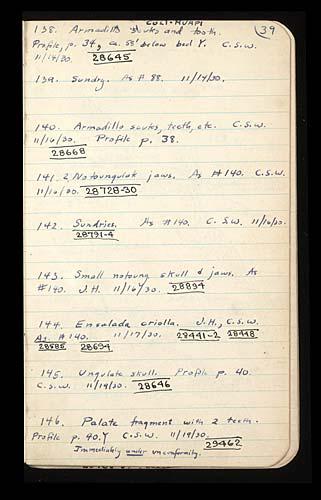 COLI-HUAPI
39
138. Armadillo scutes and tooth.
Profile, p. 34, ca. 55' below bed Y. C.S.W.
11/14/30. 28645
139. Sundry. As # 88. 11/14/30.
140. Armadillo scutes, teeth, etc. C.S.W.
11/16/30. Profile p. 38.
28668
141. 2 Notoungulate jaws. As #140. C.S.W.
11/16/30. 28728-30
142. Sundries. As #140. C.S.W. 11/16/30.
28791-4
143. Small notoung skull & jaws. As
#140. J.H. 11/16/30. 28894
144. Ensalada criolla. J.H., C.S.W.
As #140. 11/17/30. 28441-2 28448
28585 28694
145. Ungulate skull. Profile p. 40.
C.S.W. 11/19/30. 28646
146. Palate fragment with 2 teeth.
Profile p. 40. Y C.S.W. 11/19/30.
29462
Immediately under unconformity.